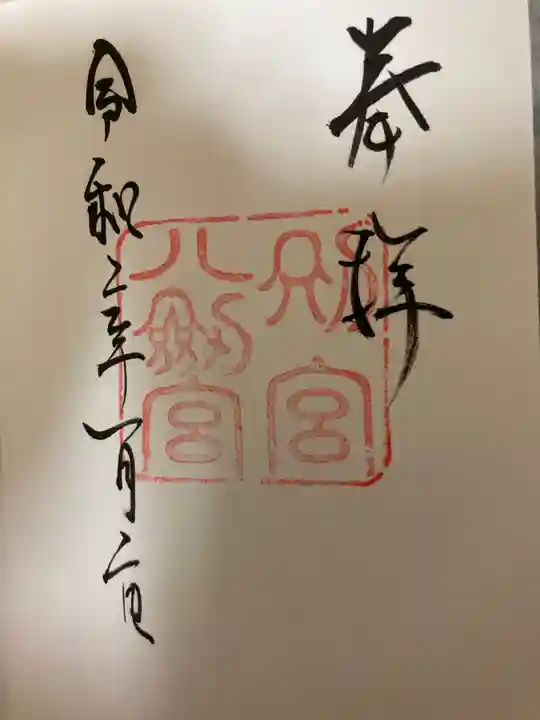 奉拝
別宮
八剣宮
令和二年一月二日